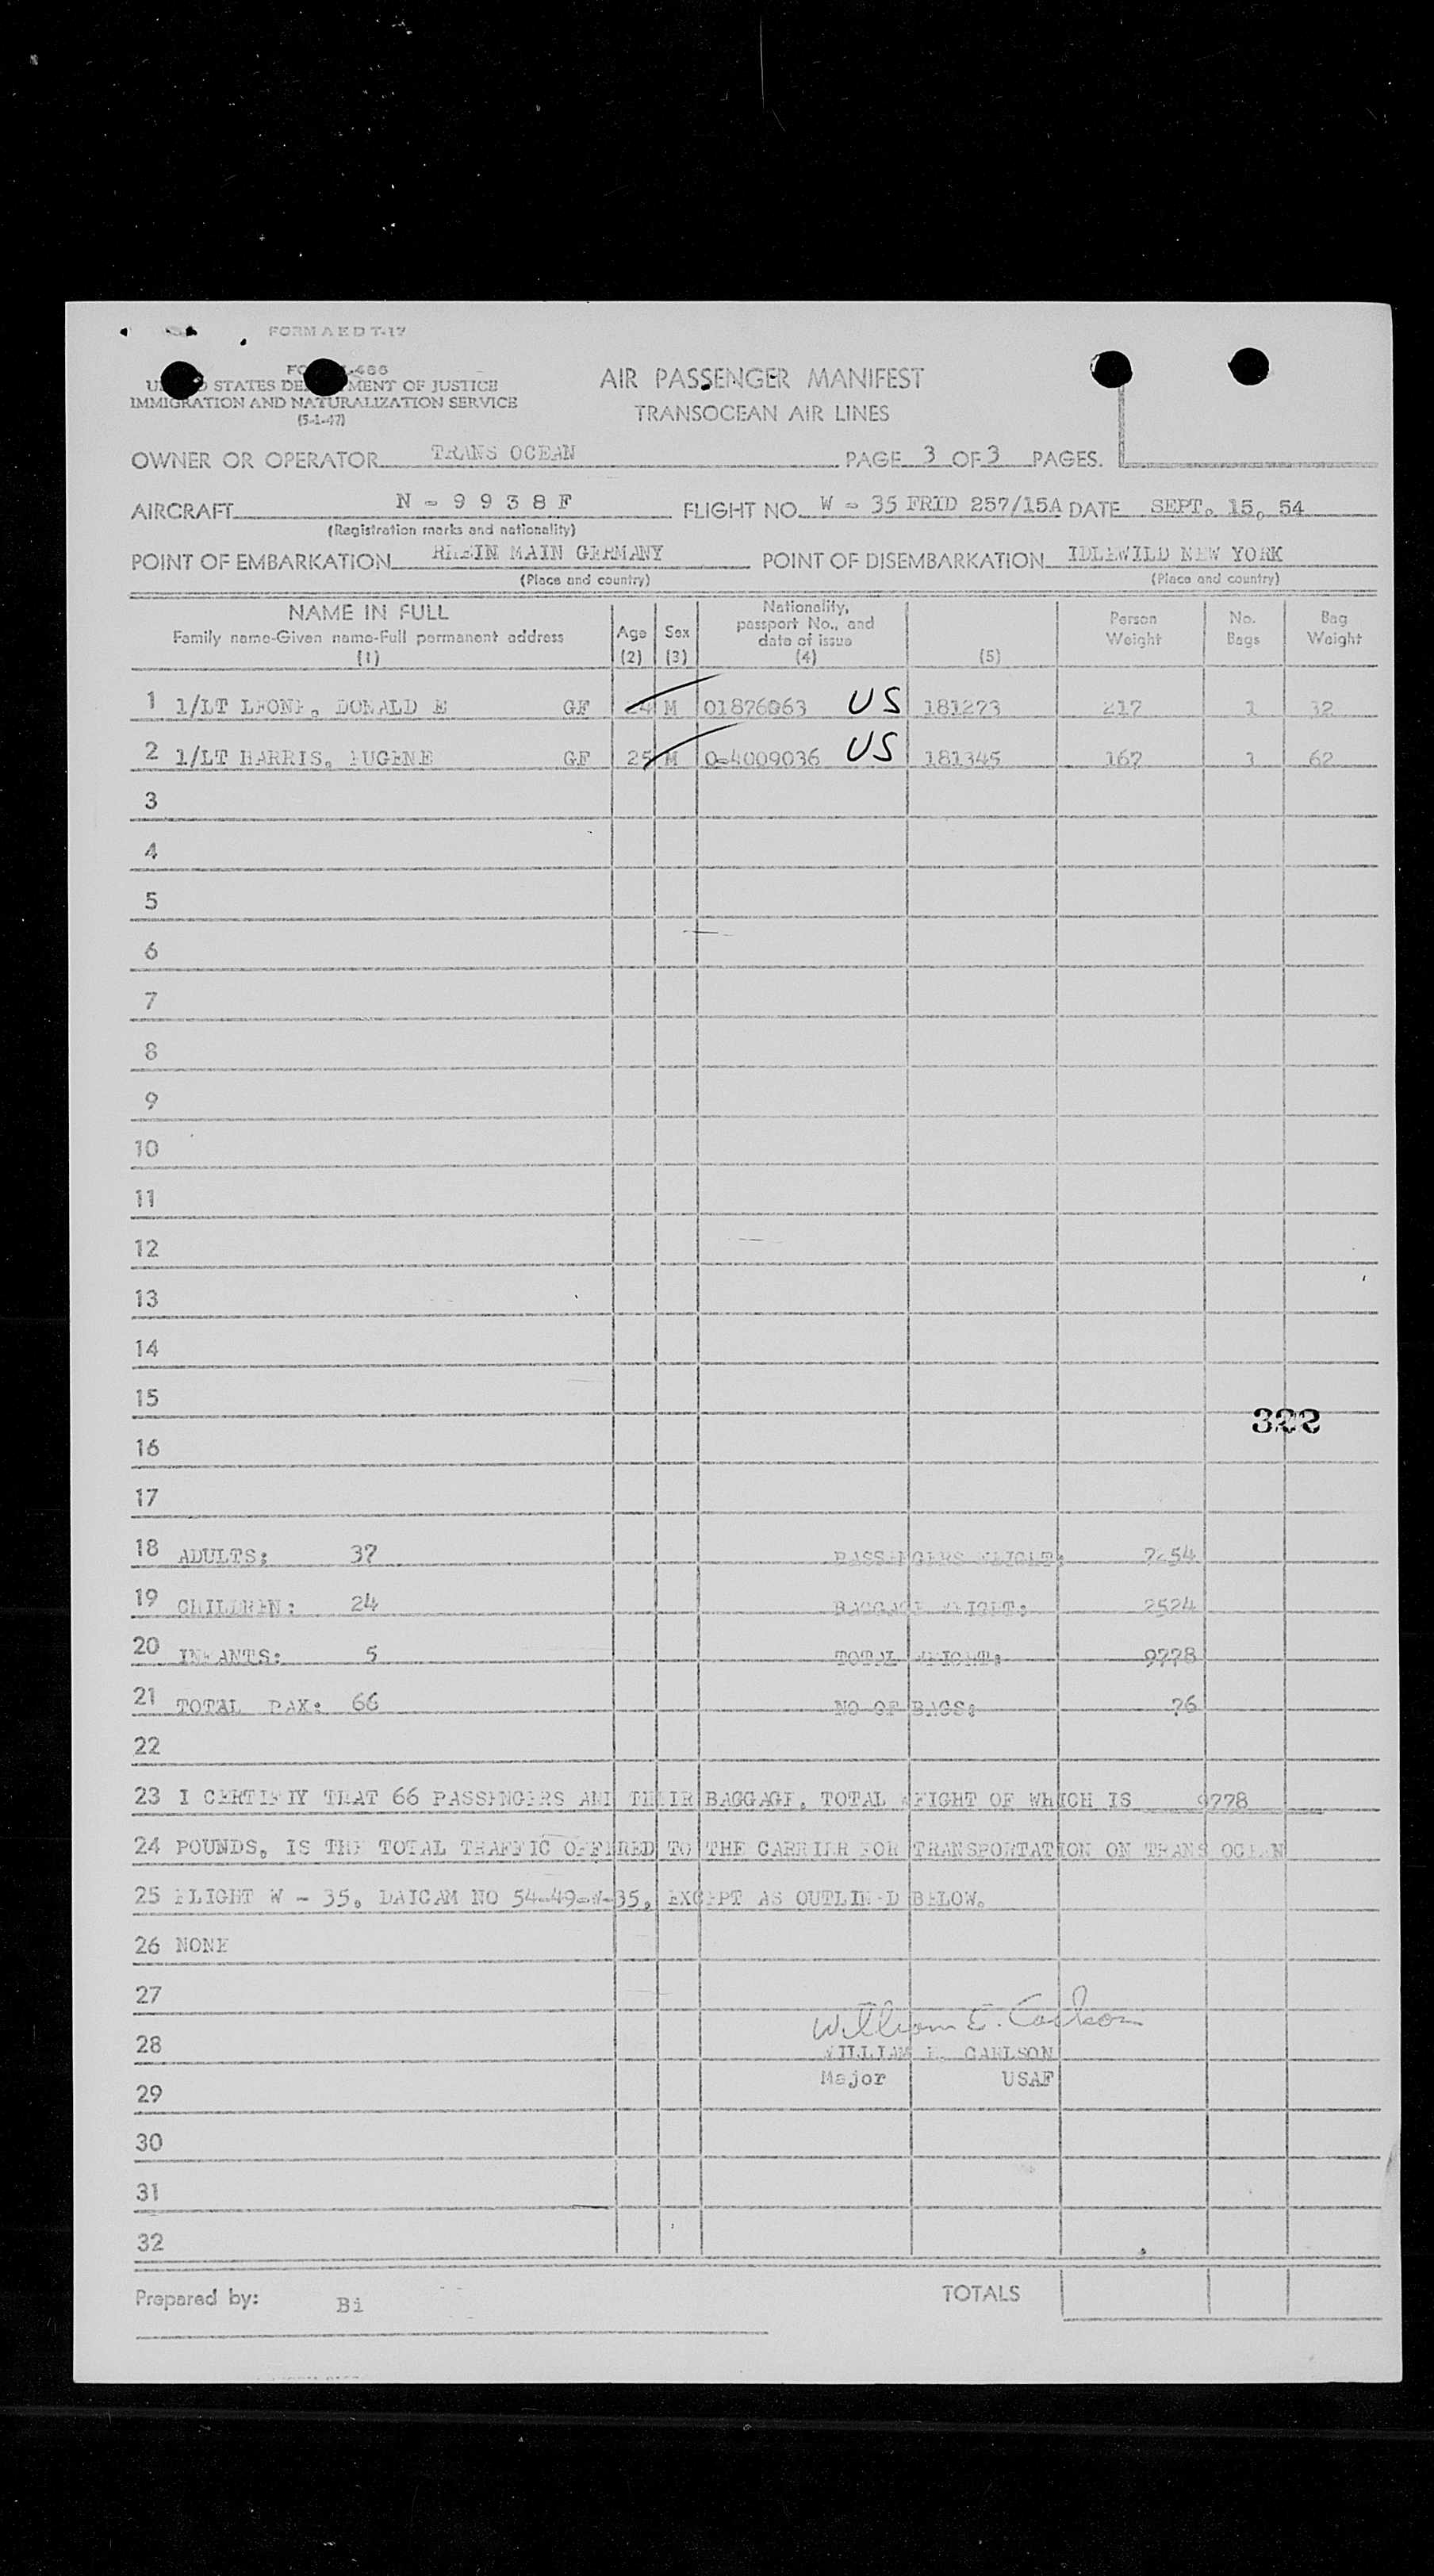 FORM A E D T-17
UNITED STATES DEPARTMENT OF JUSTICE
IMMIGRATION AND NATURALIZATION SERVICE
(5-1-47)
AIR PASSENGER MANIFEST
TRANSOCEAN AIR LINES
OWNER OR OPERATOR TRANS OCEAN PAGE 3 OF 3 PAGES.
AIRCRAFT N - 9 9 3 8 F FLIGHT NO. W - 35 FRID 257/15A DATE SEPT. 15, 54
(Registration marks and nationality)
POINT OF EMBARKATION RHEIN MAIN GERMANY POINT OF DISEMBARKATION IDLEWILD NEW YORK
(Place and country) (Place and country)
NAME IN FULL
Family name-Given name-Full permanent address
(1)
Age
(2)
Sex
(3)
Nationality,
passport No., and
date of issue
(4)
(5)
Person
Weight
No.
Bags
Bag
Weight
1 1/LT LEONE, DONALD E GF 24 M 01876063 US 181273 217 1 32
2 1/LT HARRIS, EUGENE GF 25 M O-4009036 US 181345 167 1 62
3
4
5
6
7
8
9
10
11
12
13
14
15
16
17
18 ADULTS: 37 PASSENGERS WEIGHT: 7254
19 CHILDREN: 24 BAGGAGE WEIGHT: 2524
20 INFANTS: 5 TOTAL WEIGHT: 9778
21 TOTAL PAX: 66 NO OF BAGS: 76
22
23 I CERTIFIY THAT 66 PASSENGERS AND THEIR BAGGAGE, TOTAL WEIGHT OF WHICH IS 9778
24 POUNDS, IS THE TOTAL TRAFFIC OFFERED TO THE CARRIER FOR TRANSPORTATION ON TRANS OCEAN
25 FLIGHT W - 35, DAICAM NO 54-49-W-35, EXCEPT AS OUTLINED BELOW.
26 NONE
27
William E. Carlson
28 WILLIAM E. CARLSON
29 Major USAF
30
31
32
Prepared by: Bi TOTALS